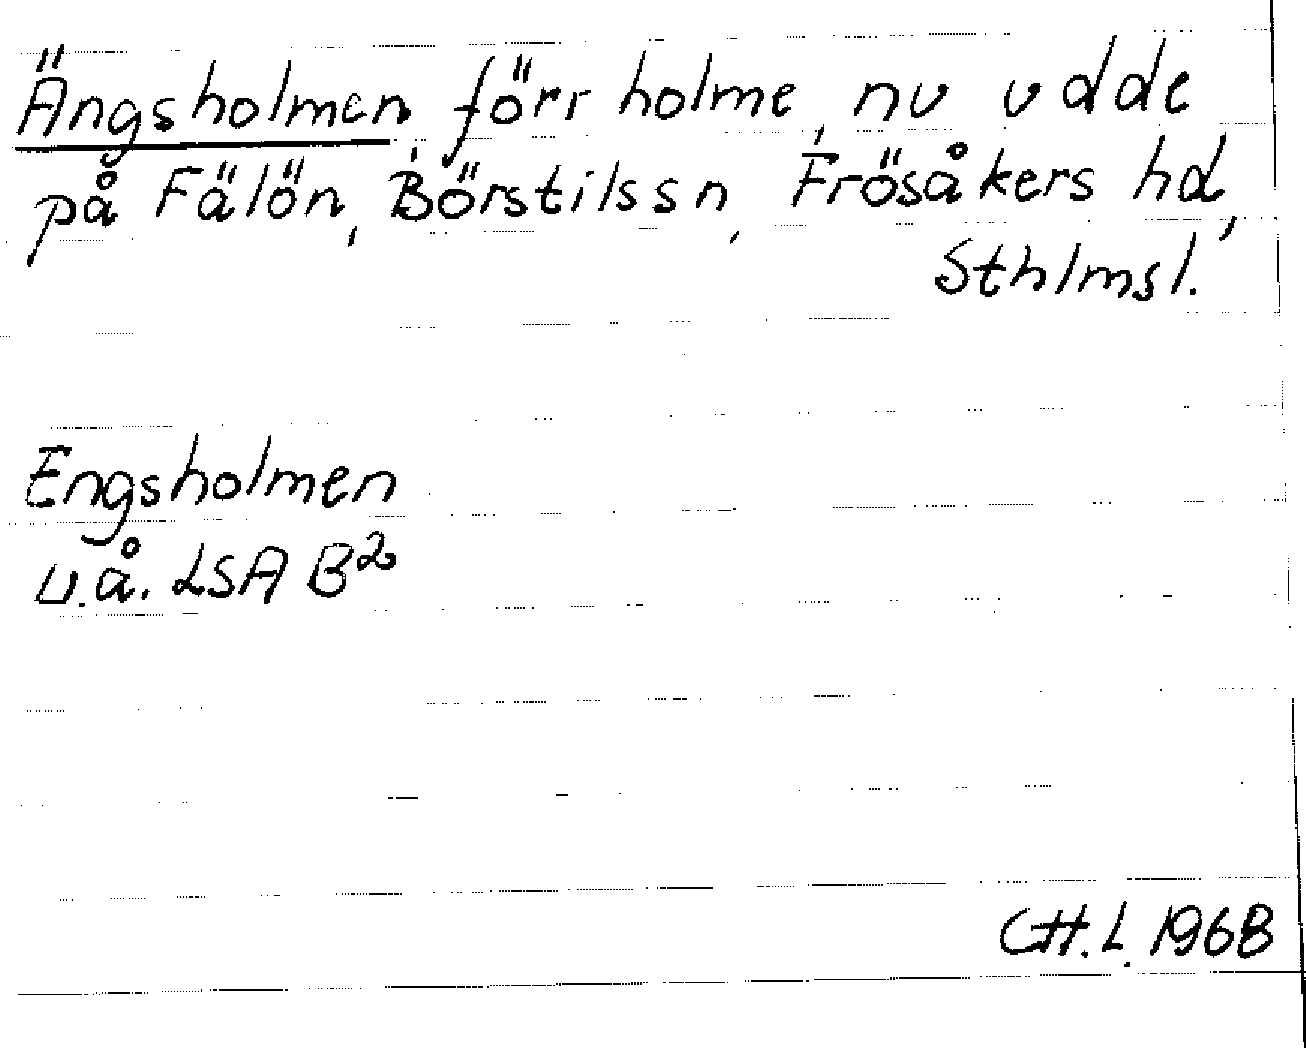 Ängsholmen, förr holme, nu udde
på Fälön, Börstilssn, Frösåkers hd,
Sthlmsl.
Engsholmen
u.å. LSA B²
CH.L. 1968